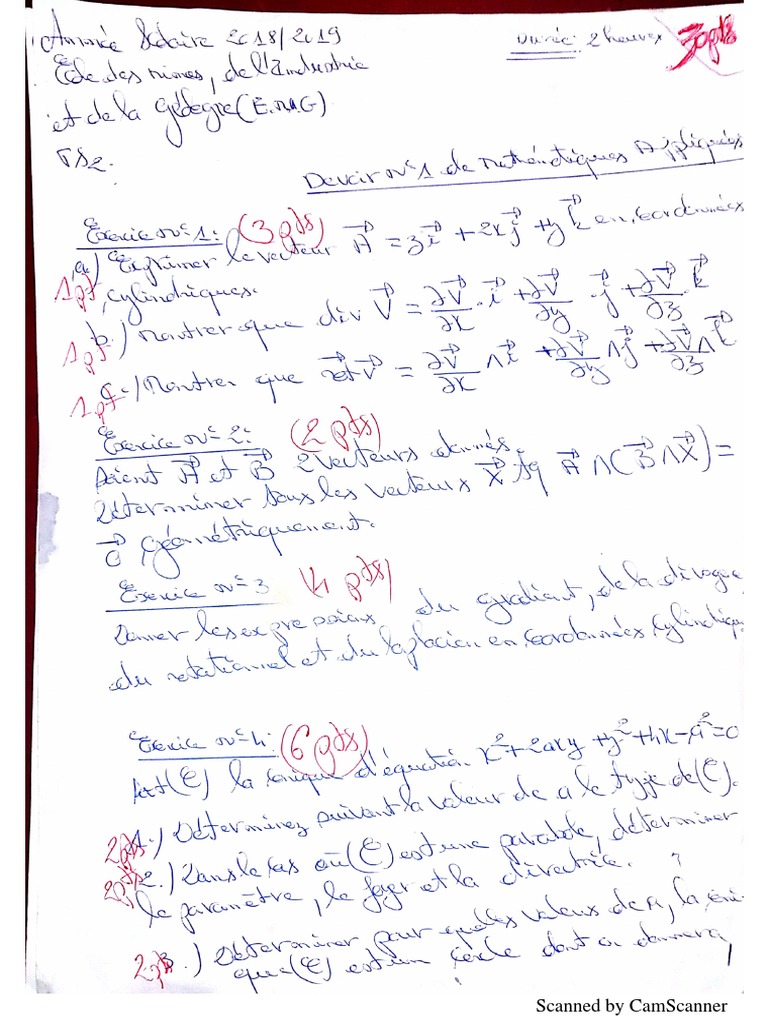 Année Scolaire 2018/2019 Durée: 2 heures 30pts
Ecole des mines, de l'Industrie
et de la Géologie (E.M.I.G)
TS2.
Devoir n°1 de Mathématiques Appliquées
Exercice n°1: (3 pts)
a) Exprimer le vecteur A⃗ = 3i⃗ + 2xj⃗ + yk⃗ en coordonnées
1pt cylindriques.
1pt b) Montrer que div V⃗ = ∂V⃗/∂x · i⃗ + ∂V⃗/∂y · j⃗ + ∂V⃗/∂z · k⃗
1pt c) Montrer que rot V⃗ = ∂V⃗/∂x ∧ i⃗ + ∂V⃗/∂y ∧ j⃗ + ∂V⃗/∂z ∧ k⃗
Exercice n°2: (2 pts)
Soient A⃗ et B⃗ 2 vecteurs donnés.
Déterminer tous les vecteurs X⃗ tq A⃗ ∧ (B⃗ ∧ X⃗) =
0⃗ géométriquement.
Exercice n°3 (4 pts)
Donner les expressions du gradient, de la diverge
du rotationnel et du laplacien en coordonnées cylindriqu
Exercice n°4: (6 pts)
Soit (C) la conique d'équation x² + 2axy + y² + 4x - a² = 0
2pts 1.) Déterminez suivant la valeur de a le type de (C).
2pts 2.) Dans le cas où (C) est une parabole, déterminer
le paramètre, le foyer et la directrice.
2pts 3.) Déterminer, pour quelles valeurs de a, la coni
que (C) est un cercle dont on donnera
Scanned by CamScanner